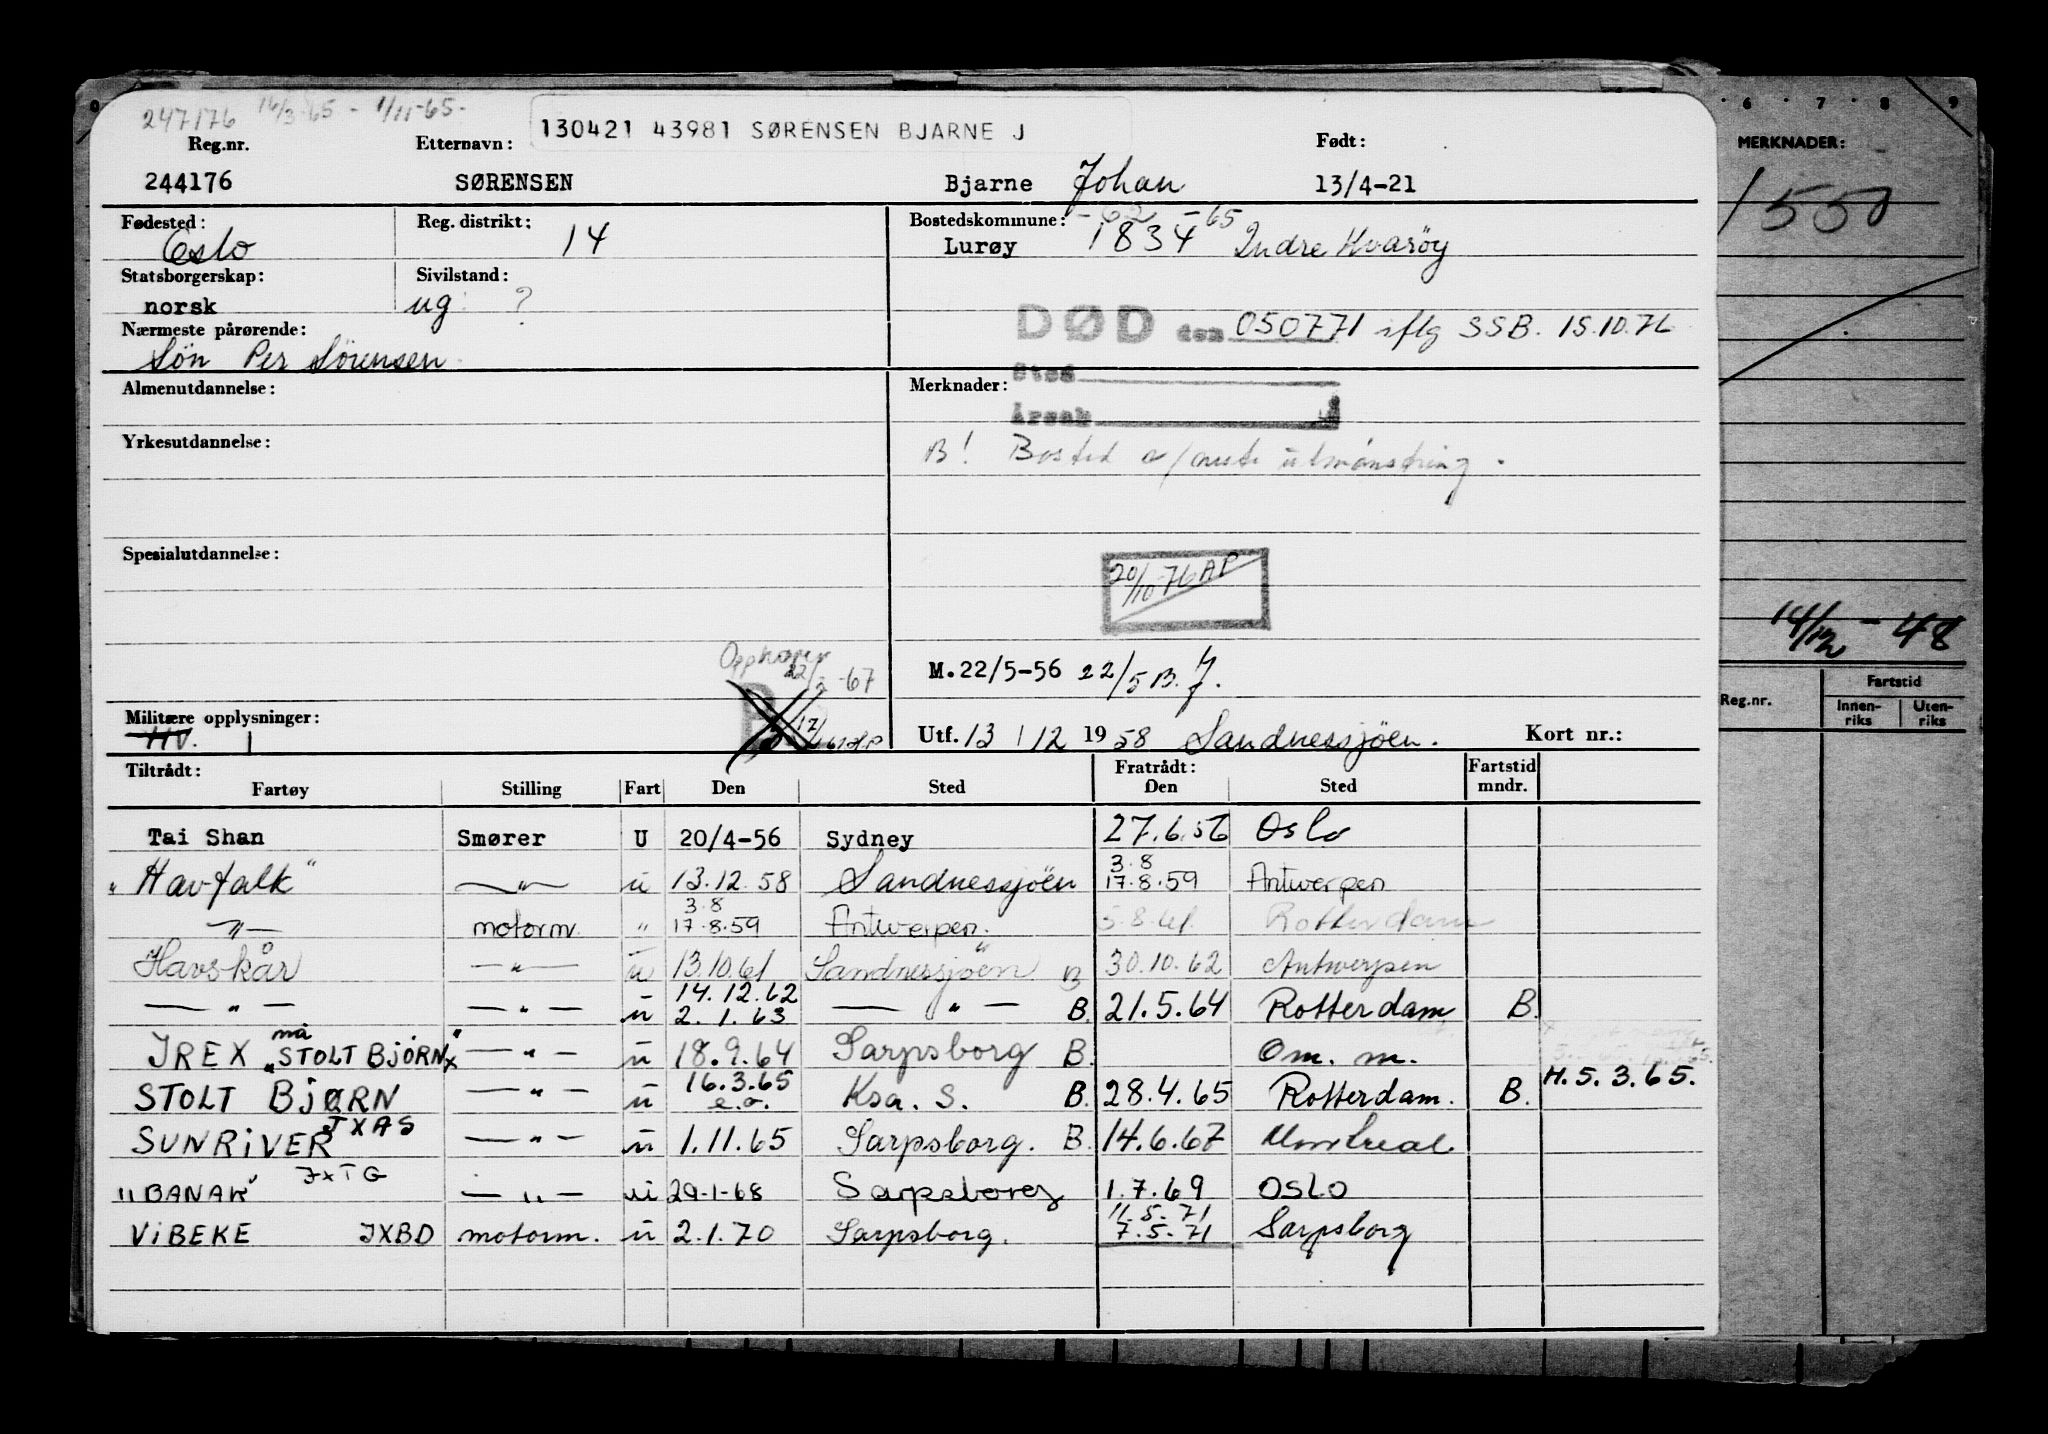 247176 16/3-65 - 1/11-65-
130421 43981 SØRENSEN BJARNE J
Reg.nr. Etternavn: Født:
244176 SØRENSEN Bjarne Johan 13/4-21
Fødested: Reg. distrikt: Bostedskommune: -62 -65
Oslo 14 Lurøy 1834 Indre Kvarøy
Statsborgerskap: Sivilstand:
norsk ug ?
DØD den 050771 iflg SSB. 15.10.76
Nærmeste pårørende:
Sön Per Sörensen
Sted
Almenutdannelse: Merknader:
Årsak
Yrkesutdannelse:
B! Bosted v/ utmönstring.
Spesialutdannelse:
20/10-76 AP
Opphører
22/2-67
M.22/5-56 22/5 B.
B 12/
Militære opplysninger:
HV. 1
Utf. 13/12 1958 Sandnessjöen. Kort nr.:
Tiltrådt: Fratrådt: Fartstid
Fartøy Stilling Fart Den Sted Den Sted mndr.
Tai Shan Smører U 20/4-56 Sydney 27.6.56 Oslo
"Havfalk" —"— u 13.12.58 Sandnessjöen 3.8 17.8.59 Antwerpen
—"— motorm. " 3.8 17.8.59 Antwerpen. 5.8.61. Rotterdam
Havskår —"— u 13.10.61 Sandnessjöen B 30.10.62 Antwerpen
—"— —"— u 14.12.62 2.1.63 —"— B. 21.5.64 Rotterdam B.
IREX nå "STOLT BJØRN" —"— u 18.9.64 Sarpsborg B. Om. m.
STOLT BJØRN —"— u 16.3.65 e.o. Ksa. S. B. 28.4.65 Rotterdam. B. H. 5.3.65.
SUNRIVER JXAS —"— u 1.11.65 Sarpsborg. B. 14.6.67 Montreal
"BANAK" JXTG —"— u 29-1-68 Sarpsborg 1.7.69 OSLO
VIBEKE JXBD motorm. u 2.1.70 Sarpsborg. 11.5.71 7.5.71 Sarpsborg
6 7 8 9
MERKNADER:
1550
14/12-48
Reg.nr. Fartstid
Innen-
riks Uten-
riks